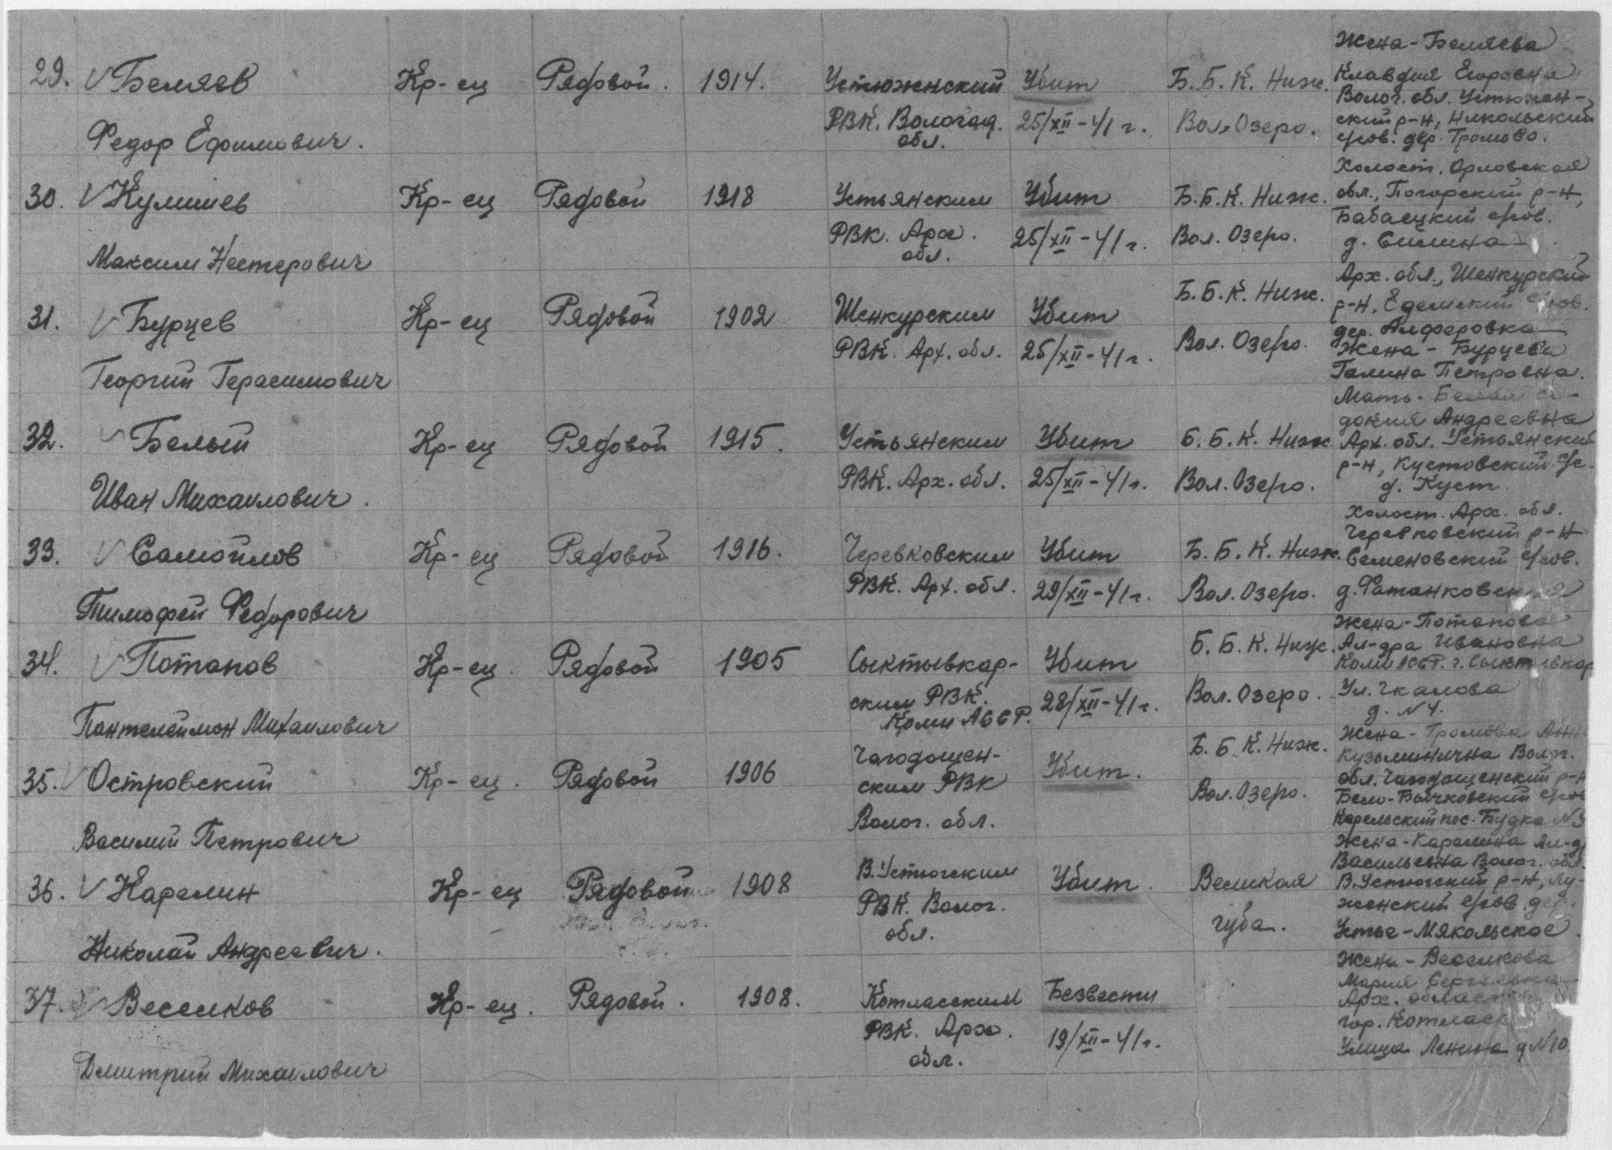 29. Беляев Кр-ец Рядовой. 1914. Устюженский Убит Б.Б.К. Ниж. Жена-Беляева
Федор Ефимович. РВК. Вологод. обл. 25/XII-41г. Вол. Озеро. Клавдия Егоровна
Волог. обл. Устюжен-
ский р-н, Никольский
с/сов. дер. Громово.
30. Кулишев Кр-ец Рядовой 1918 Устьянским Убит Б.Б.К. Ниж. Холост. Орловская
Максим Нестерович РВК. Арх. обл. 25/XII-41г. Вол. Озеро. обл., Погарский р-н,
с/сов.
д.
31. Бурцев Кр-ец Рядовой 1902 Шенкурским Убит Б.Б.К. Ниж. Арх. обл., Шенкурский
Георгий Герасимович РВК. Арх. обл. 25/XII-41г. Вол. Озеро. р-н, Едемский с/сов.
дер. Алферовка
Жена - Бурцева
Галина Петровна.
32. Белый Кр-ец Рядовой 1915. Устьянским Убит Б.Б.К. Ниж Мать-
Иван Михайлович. РВК. Арх. обл. 25/XII-41г. Вол. Озеро. докия Андреевна
Арх. обл. Устьянский
р-н, Кустовский с/с.
д. Куст
33. Самойлов Кр-ец Рядовой 1916. Черевковским Убит Б.Б.К. Ниж. Холост. Арх. обл.
Тимофей Федорович РВК. Арх. обл. 29/XII-41г. Вол. Озеро. Черевковский р-н
Семеновский с/сов.
д.
34. Потапов Кр-ец. Рядовой 1905 Сыктывкар- Убит Б.Б.К. Ниж. Жена-Потапова
Пантелеймон Михайлович ским РВК. Коми АССР. 28/XII-41г. Вол. Озеро. Ал-дра Ивановна
Коми АССР. г. Сыктывкар
Ул. Чкалова
д. №4.
35. Островский Кр-ец. Рядовой 1906 Чагодощен- Убит. Б.Б.К. Ниж. Жена- Громова
Василий Петрович ским РВК Волог. обл. Вол. Озеро. Кузьминична Волог.
обл. Чагодощенский р-н
с/сов
пос. Будка №3
36. Карелин Кр-ец Рядовой 1908 В.Устюгским Убит. Великая Жена-Карелина Ал-др
Николай Андреевич. РВК. Волог. обл. губа. Васильевна Волог. обл.
В.Устюгский р-н,
с/сов. дер.
Устье-Мякольское.
37. Веселков Кр-ец. Рядовой. 1908. Котласским Безвести Жена-Веселкова
Дмитрий Михайлович РВК. Арх. обл. 19/XII-41г. Мария Сергеевна
Арх. область
гор. Котлас
Улица Ленина д №10